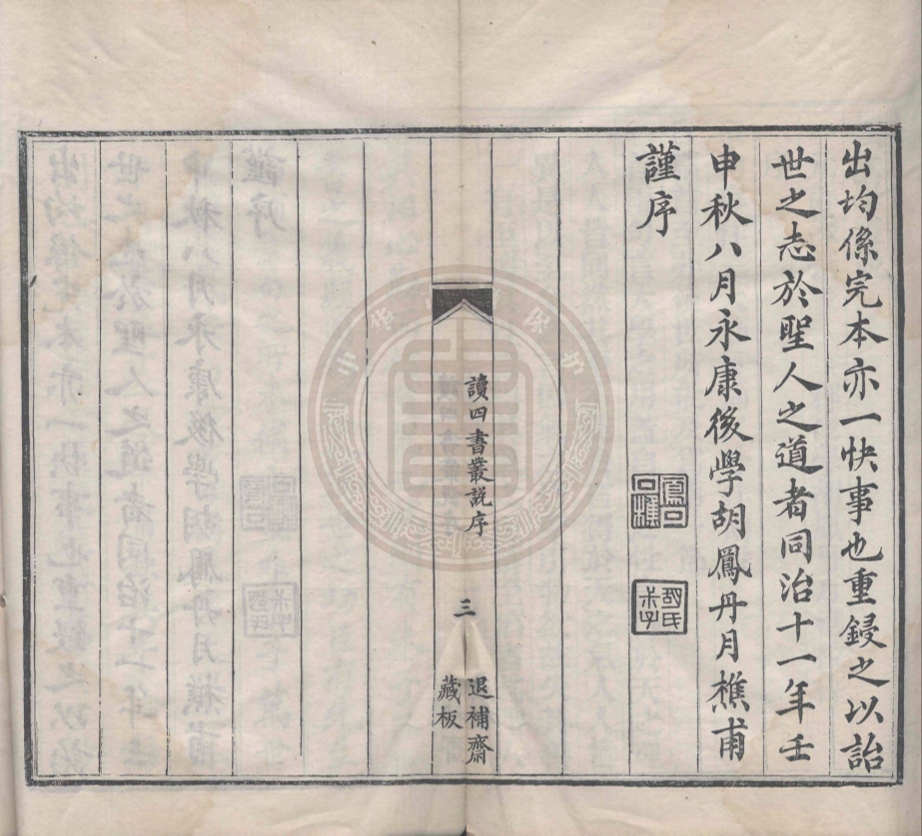 出均係完本亦一快事也重鋟之以詒
世之志於聖人之道者同治十一年壬
申秋八月永康後學胡鳳丹月樵甫
謹序
讀四書叢說序
三
退補齋
藏板